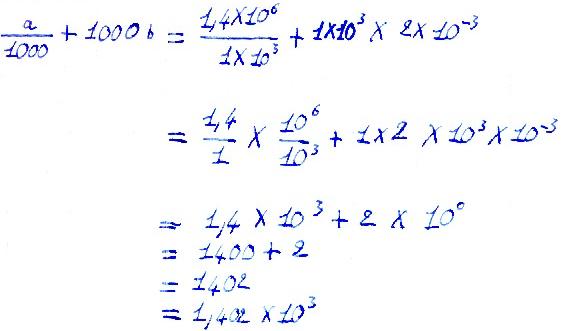 a/1000 + 1000 b = 1,4×10⁶/1×10³ + 1×10³ × 2×10⁻³
= 1,4/1 × 10⁶/10³ + 1×2 × 10³×10⁻³
= 1,4 × 10³ + 2 × 10⁰
= 1400 + 2
= 1402
= 1,402 ×10³